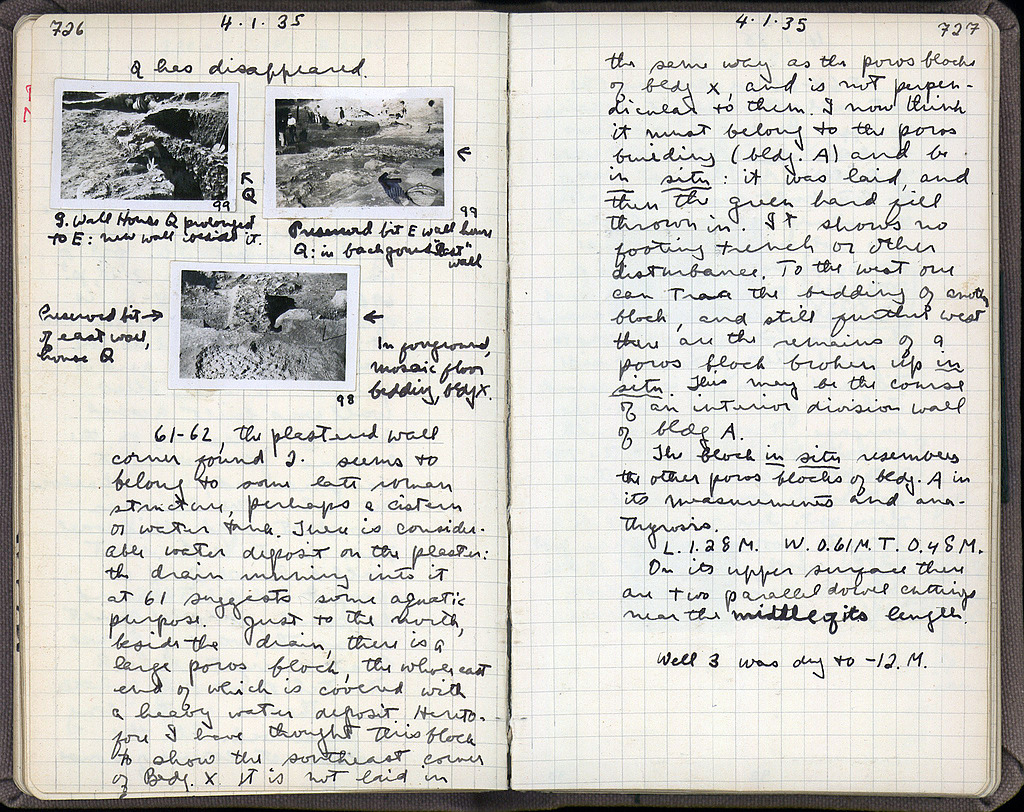 726
4.1.35
Q has disappeared.
99
Q
S. Wall House Q prolonged
to E: new wall beside it.
99
Preserved bit E wall house
Q: in background "east"
wall
Preserved bit
of east wall,
house Q
98
In foreground,
mosaic floor
bedding, bldg X.
61-62, the plastered wall
corner found 2. seems to
belong to some late roman
structure, perhaps a cistern
or water tank. There is consider-
able water deposit on the plaster:
the drain running into it
at 61 suggests some aquatic
purpose. Just to the north,
beside the drain, there is a
large poros block, the whole east
end of which is covered with
a heavy water deposit. Hereto-
fore I have thought this block
to show the southeast corner
of Bldg. X. It is not laid in
4.1.35
727
the same way as the poros blocks
of bldg X, and is not perpen-
dicular to them. I now think
it must belong to the poros
building (bldg. A) and be
in situ: it was laid, and
then the green hard fill
thrown in. It shows no
footing trench or other
disturbance. To the west one
can trace the bedding of another
block, and still further west
there are the remains of a
poros block broken up in
situ. This may be the course
of an interior division wall
of bldg A.
The block in situ resembles
the other poros blocks of bldg. A in
its measurements and ana-
thyrosis.
L. 1.28 M. W. 0.61 M. T. 0.48 M.
On its upper surface there
are two parallel dowel cuttings
near the middle of its length.
Well 3 was dry to -12. M.